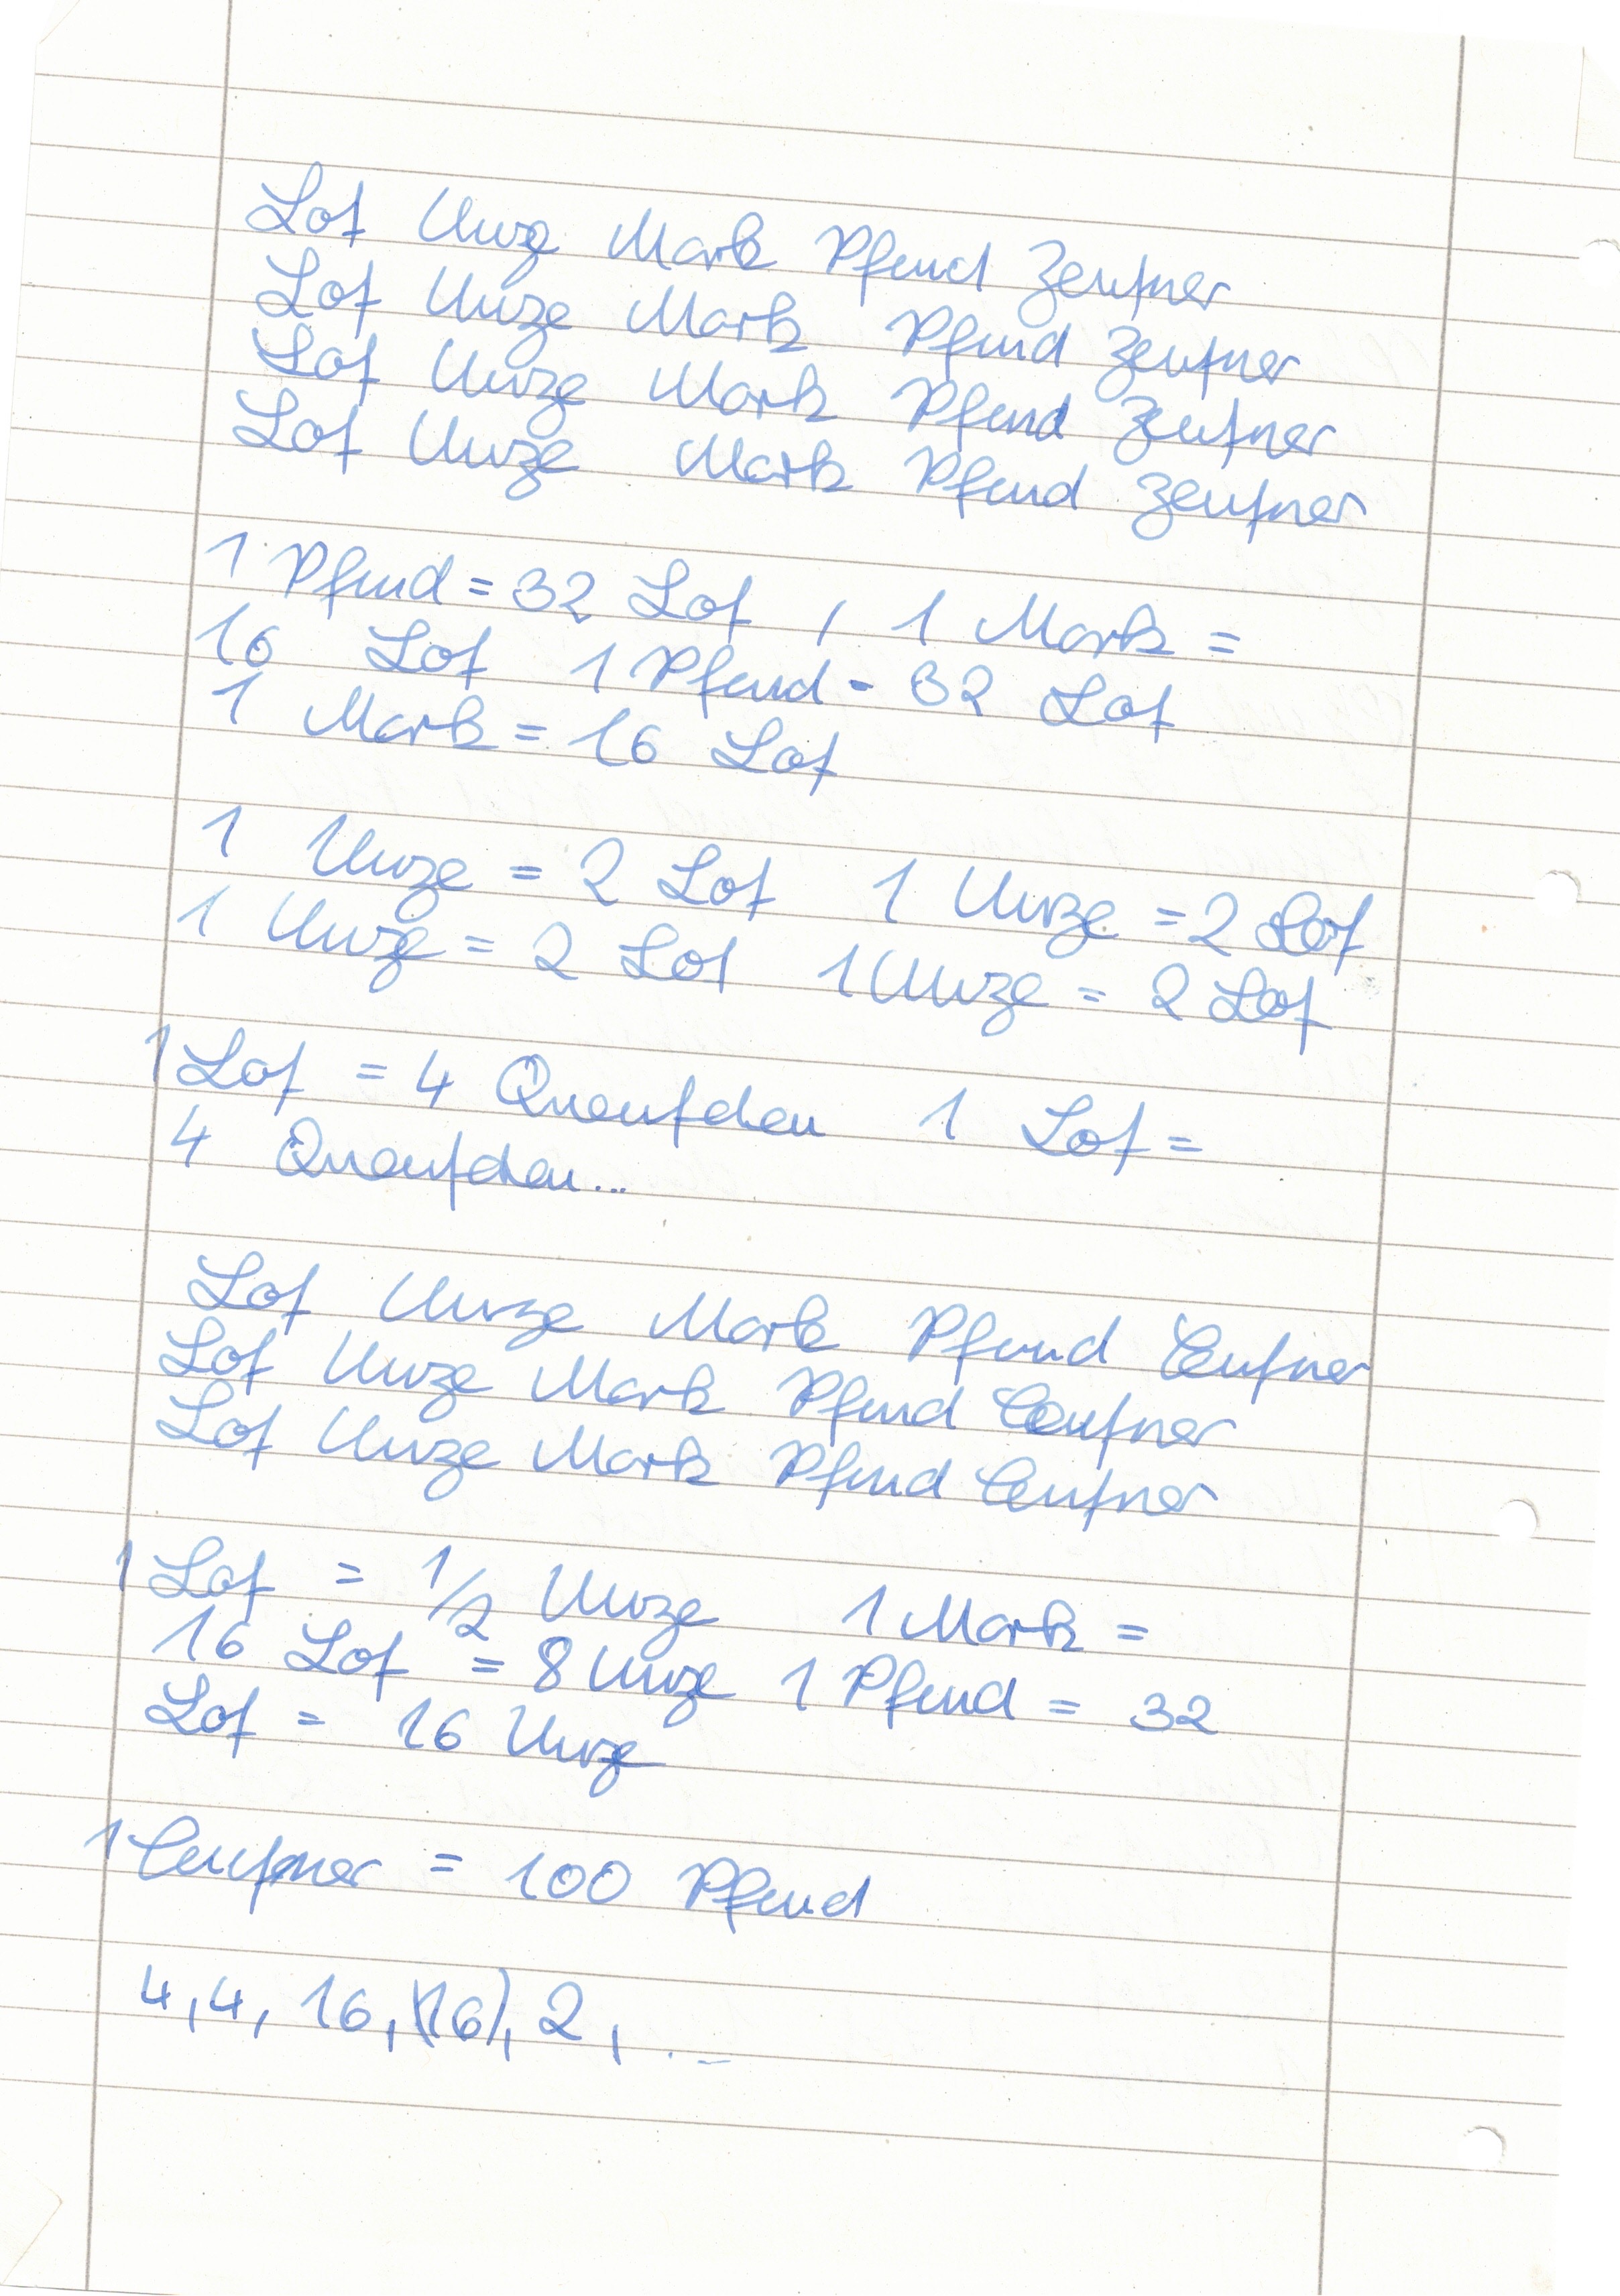 Lot Unze Mark Pfund Zentner
Lot Unze Mark Pfund Zentner
Lot Unze Mark Pfund Zentner
Lot Unze Mark Pfund Zentner
1 Pfund = 32 Lot , 1 Mark =
16 Lot 1 Pfund - 32 Lot
1 Mark = 16 Lot
1 Unze = 2 Lot 1 Unze = 2 Lot
1 Unze = 2 Lot 1 Unze = 2 Lot
1 Lot = 4 Quentchen 1 Lot =
4 Quentchen...
Lot Unze Mark Pfund Centner
Lot Unze Mark Pfund Centner
Lot Unze Mark Pfund Centner
1 Lot = 1/2 Unze 1 Mark =
16 Lot = 8 Unze 1 Pfund = 32
Lot = 16 Unze
1 Centner = 100 Pfund
4, 4, 16, (16), 2, ...